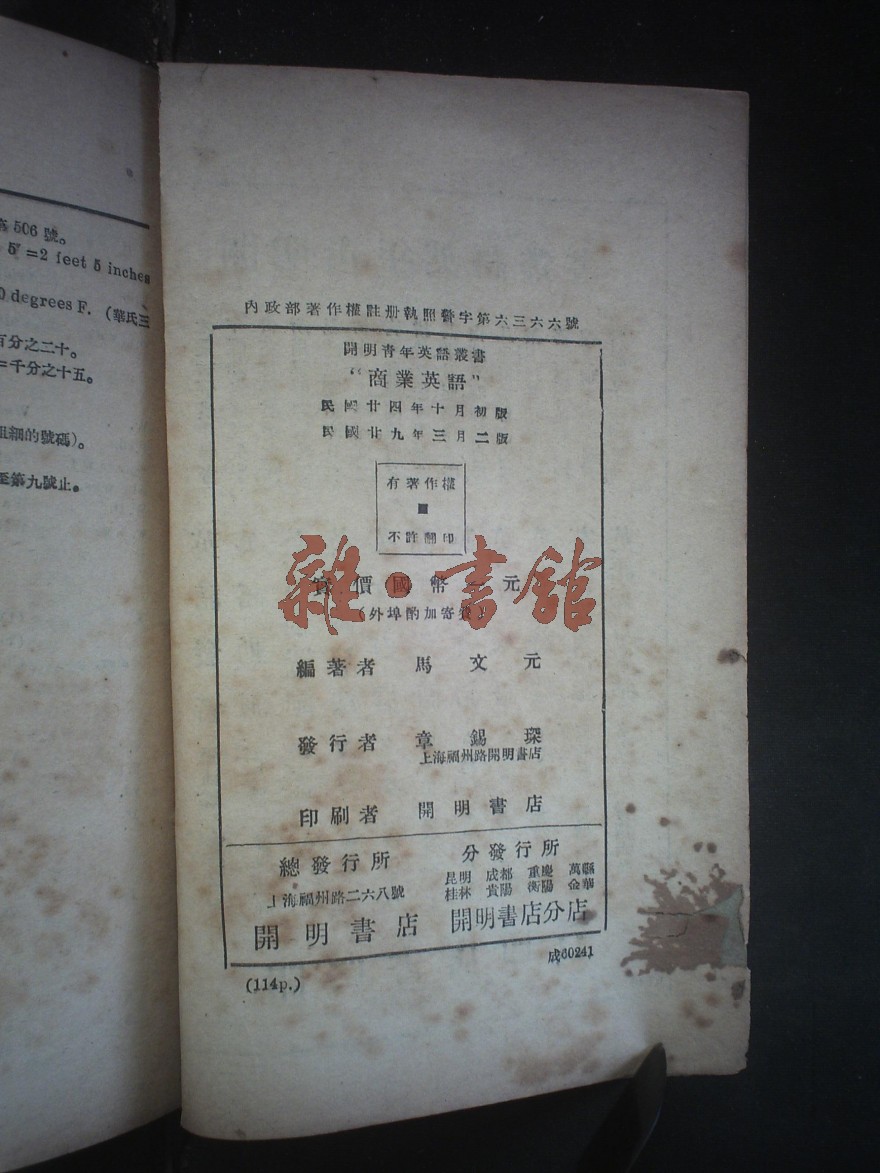 506 號。
5" =2 feet 5 inches
0 degrees F. (華氏三
百分之二十。
=千分之十五。
粗細的號碼)。
至第九號止。
內政部著作權註册執照警字第六三六六號
開明青年英語叢書
“商業英語”
民國廿四年十月初版
民國廿九年三月二版
有著作權
不許翻印
實價國幣 元
(外埠酌加寄費)
雜·書館
編著者 馬文元
發行者 章錫琛
上海福州路開明書店
印刷者 開明書店
總發行所
上海福州路二六八號
開明書店
分發行所
昆明 成都 重慶 萬縣
桂林 貴陽 衡陽 金華
開明書店分店
成60241
(114p.)